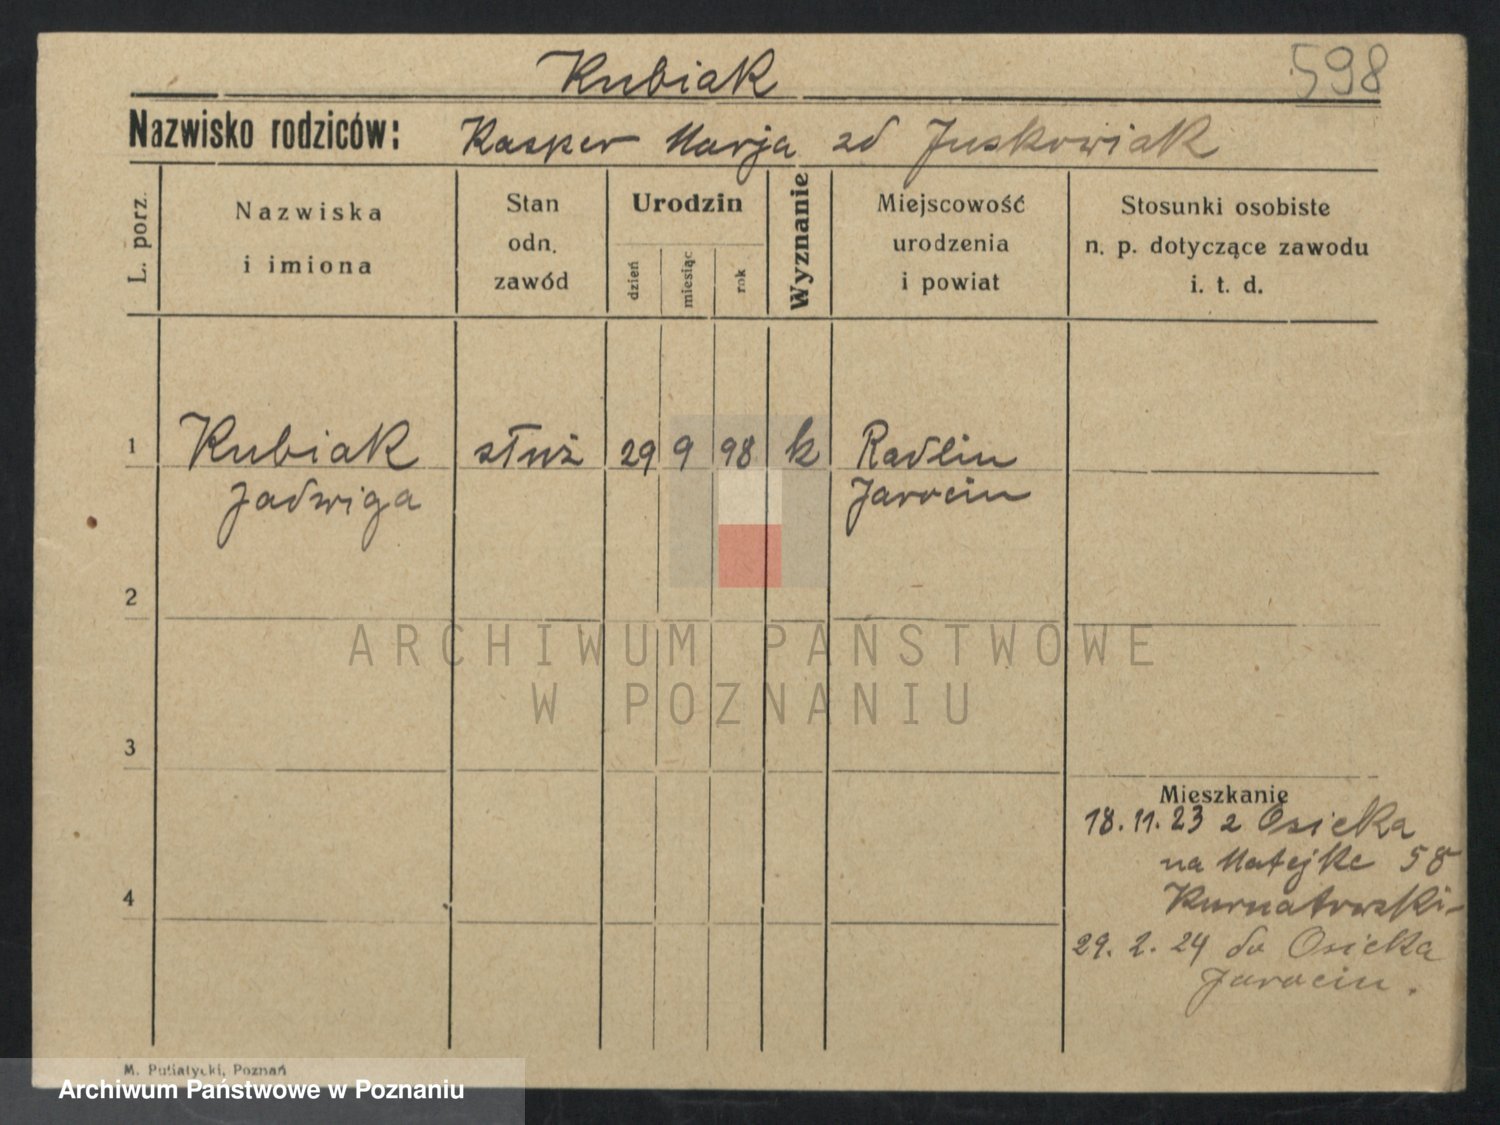 Kubiak
598
Nazwisko rodziców: Kasper Marja zd Juskowiak
L. porz.
Nazwiska
i imiona
Stan
odn.
zawód
Urodzin
dzień
miesiąc
rok
Wyznanie
Miejscowość
urodzenia
i powiat
Stosunki osobiste
n. p. dotyczące zawodu
i. t. d.
1 Kubiak służ 29 9 98 k Radlin
Jadwiga Jarocin
2
ARCHIWUM PAŃSTWOWE
W POZNANIU
3
Mieszkanie
18.11.23 z Osieka
na Matejke 58
4 Kurnatowski-
29.2.24 do Osieka
Jarocin.
M. Putiatycki, Poznań
Archiwum Państwowe w Poznaniu